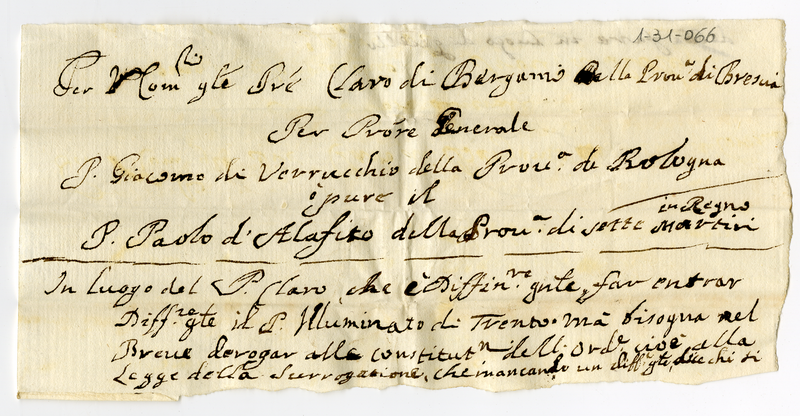 1-31-066
Per V Com.rio gle Pre Claro di Bergamo della Prou.a di Brescia
Per Prore Generale
P. Giacomo di Verrucchio della Prou.a de Bologna
ò pure il
P. Paolo d'Alafito della Prou.a di sette Martiri
in Regno
In luogo del P. Claro, che è Diffin.re gnte, far entrar
Diff.re gte il P. Illuminato di Trento. mà bisogna nel
Breue derogar alle constitut.n dell'Ord.e cioè alla
Legge della surrogatione, che mancando un diff.re gte, dic chi si